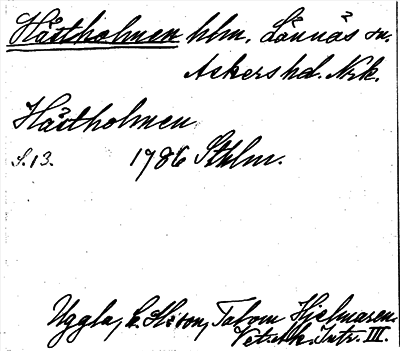 Hästholmen hlm. Lännäs sn.
Askers hd. Nrk.
Hästholmen
S. 13. 1786 Sthlm.
Uggla, C. Hi:son, Tal om Hjelmaren.
Vet. Ak. Intr. III.